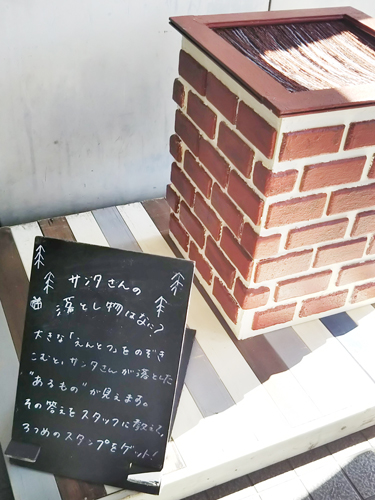 サンタさんの
落とし物はなに?
大きな「えんとつ」をのぞき
こむと、サンタさんが落とした
"あるもの"が見えます。
その答えをスタッフに教えて、
3つめのスタンプをゲット!